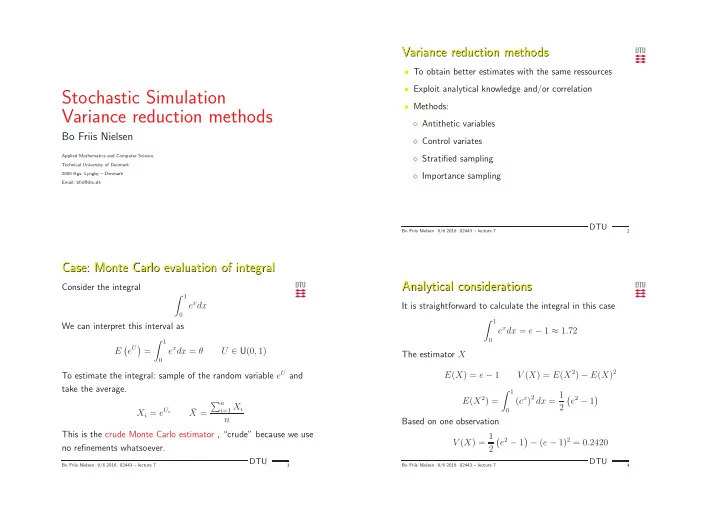 Stochastic Simulation
Variance reduction methods
Bo Friis Nielsen
Applied Mathematics and Computer Science
Technical University of Denmark
2800 Kgs. Lyngby – Denmark
Email: bfni@dtu.dk
Variance reduction methods
DTU
• To obtain better estimates with the same ressources
• Exploit analytical knowledge and/or correlation
• Methods:
⋄ Antithetic variables
⋄ Control variates
⋄ Stratified sampling
⋄ Importance sampling
DTU
Bo Friis Nielsen 8/6 2016 02443 – lecture 7 2
Case: Monte Carlo evaluation of integral
DTU
Consider the integral
∫_0^1 e^x dx
We can interpret this interval as
E (e^U) = ∫_0^1 e^x dx = θ U ∈ U(0, 1)
To estimate the integral: sample of the random variable e^U and
take the average.
X_i = e^{U_i} X̄ = ∑_{i=1}^n X_i / n
This is the crude Monte Carlo estimator , “crude” because we use
no refinements whatsoever.
DTU
Bo Friis Nielsen 8/6 2016 02443 – lecture 7 3
Analytical considerations
DTU
It is straightforward to calculate the integral in this case
∫_0^1 e^x dx = e − 1 ≈ 1.72
The estimator X
E(X) = e − 1 V(X) = E(X^2) − E(X)^2
E(X^2) = ∫_0^1 (e^x)^2 dx = 1/2 (e^2 − 1)
Based on one observation
V(X) = 1/2 (e^2 − 1) − (e − 1)^2 = 0.2420
DTU
Bo Friis Nielsen 8/6 2016 02443 – lecture 7 4